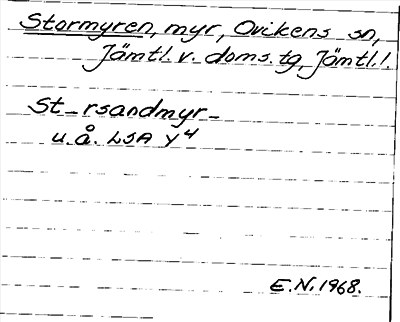 Stormyren, myr, Ovikens sn,
Jämtl. v. doms. tg, Jämtl.l.
St_rsandmyr_
u.å. LSA Y4
E.N. 1968.